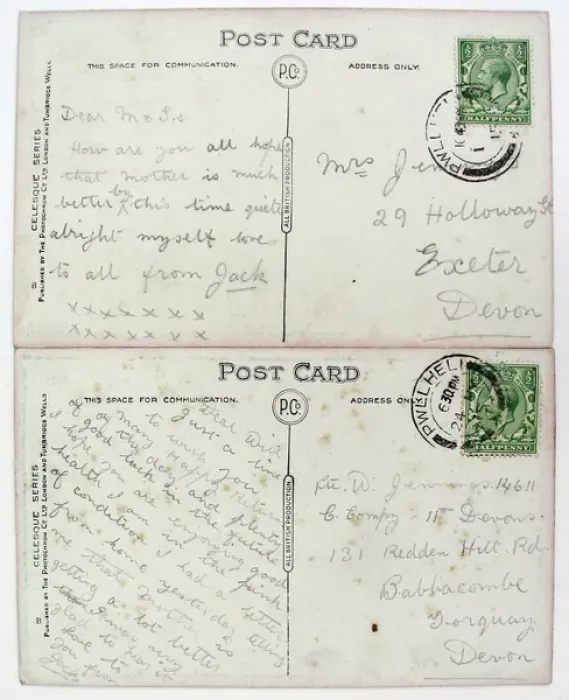 POST CARD
THIS SPACE FOR COMMUNICATION.
P.Co
ADDRESS ONLY.
HALFPENNY
PWLLHELI
CELESQUE SERIES
PUBLISHED BY THE PHOTOCHROM CO LTD LONDON AND TUNBRIDGE WELLS
ALL BRITISH PRODUCTION
Dear M & S.s
How are you all hope
that Mother is much
better by this time quite
alright myself love
to all from Jack
x x x x x x x
x x x x x x x
Mrs Jen
29 Holloway St
Exeter
Devon
POST CARD
THIS SPACE FOR COMMUNICATION.
P.Co
ADDRESS ONLY
HALFPENNY
PWLLHELI
6 30 PM
24
CELESQUE SERIES
PUBLISHED BY THE PHOTOCHROM CO LTD LONDON AND TUNBRIDGE WELLS
ALL BRITISH PRODUCTION
Dear Will
Just a line
to wish you
many Happy Returns
of the day and plenty
of good luck in the future
I hope you are enjoying good
health I am in the pink
of condition I had a letter
from home yesterday telling
me that mother is
getting a lot better
I was very
glad to hear it
love to
you from
Jack
Pte. W. Jennings. 14611
C. Compy - 11th Devons.
131 Redden Hill Rd.
Babbacombe
Torquay
Devon